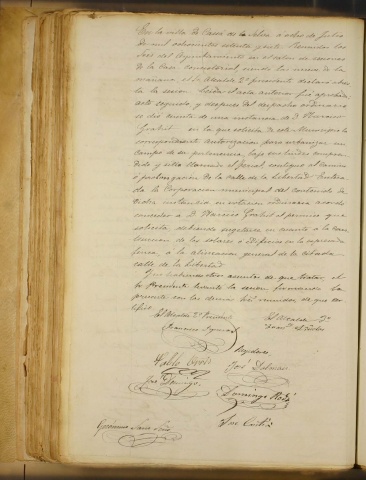 En la villa de Cassá de la Selva á ocho de Julio
de mil ochocientos setenta y siete. Reunidos los
Sres del Ayuntamiento en el salon de sesiones
de la Casa consistorial, siendo las nueve de la
mañana, el Sr Alcalde 2º presidente declaró abier
ta la sesion. Leida el acta anterior fué aprobada,
acto seguido, y despues del despacho ordinario
se dió cuenta de una instancia de D. Narciso
en la que solicita de este Municipio la
correspondiente autorizacion para urbanizar un
campo de su pertenencia, bajo su linde compren
dido y sitio llamado contiguo al camino
ó prolongacion de la calle de la Libertad. Entera
da la Corporacion municipal del contenido de
dicha instancia en votacion ordinaria acordó
conceder á D. Narciso el permiso que
solicita, debiendo sugetarse en cuanto á la cons
truccion de los solares ó edificios en la espresada
finca, á la alineacion general de la citada
calle de la Libertad.
Y no habiendo otros asuntos de que tratar, el
Sr Presidente levantó la sesion, firmando la
presente con los demas Sres reunidos de que cer
tifico.
El Alcalde 2º
El Alcalde
Francisco
Regidores
Pablo
José
José Domingo
Domingo
Geronimo
José